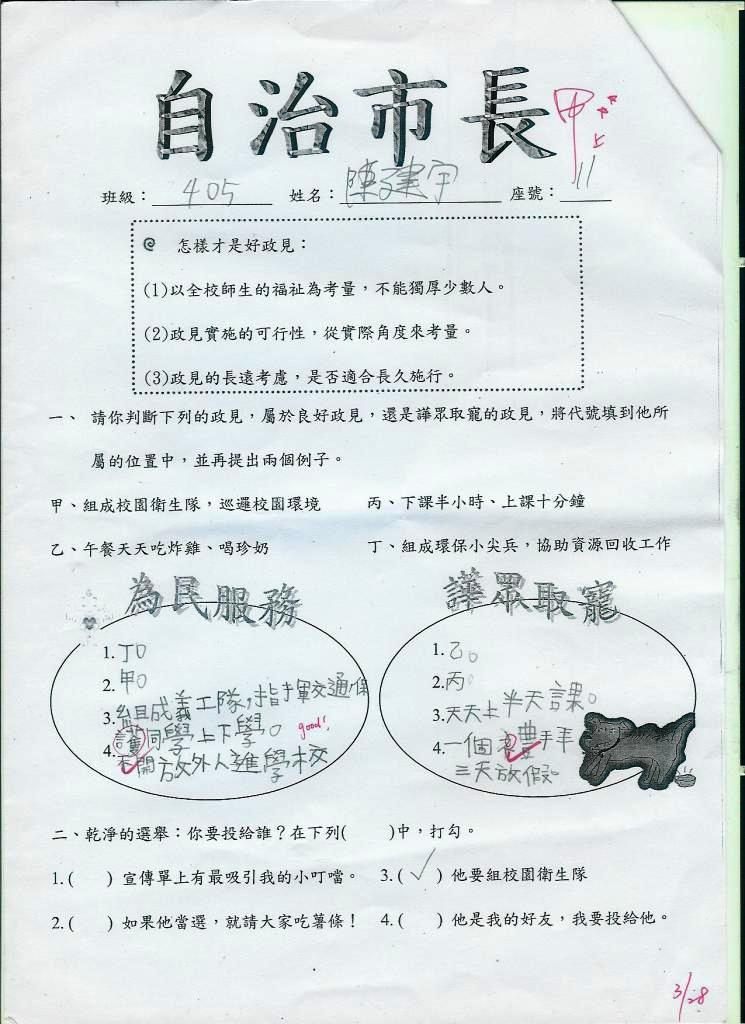 自治市長
甲上
班級：405 姓名：陳建宇 座號：11
怎樣才是好政見：
(1)以全校師生的福祉為考量，不能獨厚少數人。
(2)政見實施的可行性，從實際角度來考量。
(3)政見的長遠考慮，是否適合長久施行。
一、 請你判斷下列的政見，屬於良好政見，還是譁眾取寵的政見，將代號填到他所
屬的位置中，並再提出兩個例子。
甲、組成校園衛生隊，巡邏校園環境 丙、下課半小時、上課十分鐘
乙、午餐天天吃炸雞、喝珍奶 丁、組成環保小尖兵，協助資源回收工作
為民服務
1.丁。
2.甲。
3.組成義工隊，指揮交通，保
護同學上下學。 good!
4.不開放外人進學校
譁眾取寵
1.乙。
2.丙。
3.天天上半天課。
4.一個禮拜
三天放假。
二、乾淨的選舉：你要投給誰？在下列( )中，打勾。
1.( ) 宣傳單上有最吸引我的小叮噹。 3.(✓) 他要組校園衛生隊
2.( ) 如果他當選，就請大家吃薯條！ 4.( ) 他是我的好友，我要投給他。
3/28